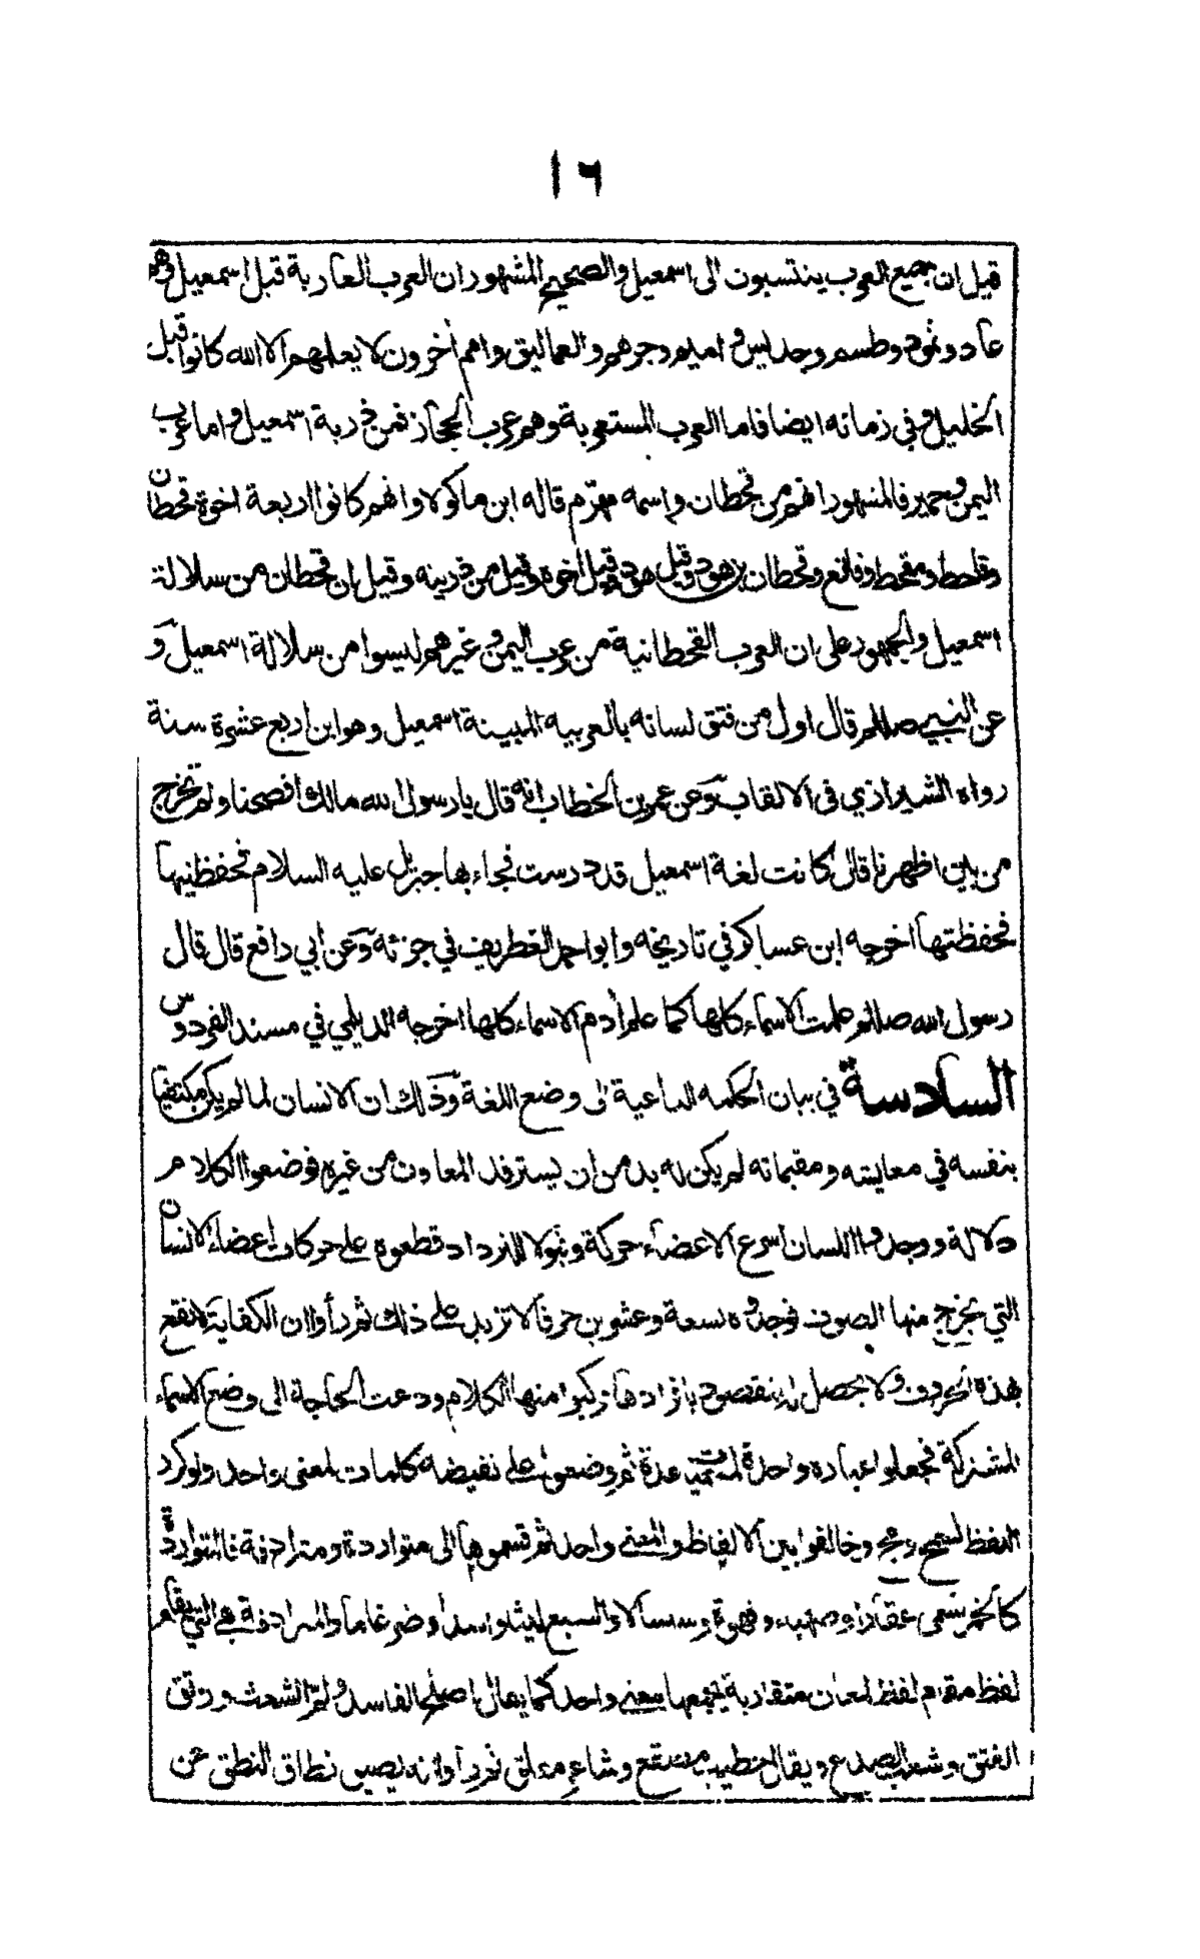 ١٦
قيل ان جميع العرب ينتسبون الى اسمعيل والصحيح المشهور ان العرب العاربة قبل اسمعيل وهم
عاد وثمود وطسم وجديس و اميم وجرهم والعماليق وامم أخرون لا يعلمهم الا الله كانوا قبل
الخليل وفي زمانه ايضا فاما العرب المستعربة وهم عرب الحجاز فمن ذرية اسمعيل واما عرب
اليمن وحمير فالمشهور انهم من قحطان واسمه مهزم قاله ابن ماكولا وانهم كانوا اربعة اخوة قحطان
وقاحط ومقحط وفالغ وقحطان بن هود وقيل هود وقيل أخوه وقيل من ذريته وقيل ان قحطان من سلالة
اسمعيل والجمهور على ان العرب القحطانية من عرب اليمن وغيرهم ليسوا من سلالة اسمعيل و
عن النبي صللم قال اول من فتق لسانه بالعربيه المبينة اسمعيل وهو ابن اربع عشرة سنة
رواه الشيرازي فى الالقاب وعن عمر بن الخطاب انه قال يا رسول الله مالك افصحنا ولم تخرج
من بين اظهرنا قال كانت لغة اسمعيل قد درست فجاء بها جبريل عليه السلام فحفظنيها
فحفظتها اخرجه ابن عساكر في تاريخه وابو احمد الغطريف في جزئه وعن ابي رافع قال قال
رسول الله صللم علمت الاسماء كلها كما علم أدم الاسماء كلها اخرجه الديلمي في مسند الفردوس
السادسة في بيان الحكمه الداعية الى وضع اللغة وذلك ان الانسان لما لم يكن مكتفيا
بنفسه في معايشه ومقيماته لم يكن له بد من ان يسترفد المعاون من غيره فوضعوا الكلام
دلالة ووجدوا اللسان اسرع الاعضاء حركة وقبولا للترداد قطعوه على حركات اعضاء الانسان
التي يخرج منها الصوت فوجدوه تسعة وعشرين حرفا لا تزيد على ذلك ثم رأوا ان الكفاية لا تقع
بهذه الحروف ولا يحصل المقصود بافرادها فركبوا منها الكلام ودعت الحاجة الى وضع الاسماء
المشتركة فجعلوا عبارة واحدة لمسميات عدة ثم وضعوا على نقيضه كلمات لمعنى واحد ولو كرر
اللفظ لسمج ومج وخالفوا بين الالفاظ والمعنى واحد ثم قسموها الى متواردة ومترادفة فالمتواردة
كالخمر تسمى عقارا وصهباء وقهوة وسلسالا والسبع ليثا واسدا وضرغاما والمترادفة هي التي يقام
لفظ مقام لفظ لمعان متقاربة يجمعها معنى واحد كما يقال اصلح الفاسد ولم الشعث ورتق
الفتق وشعب الصدع ويقال خطيب مصقع وشاعر مفلق ثم رأوا انه يضيق نطاق النطق عن